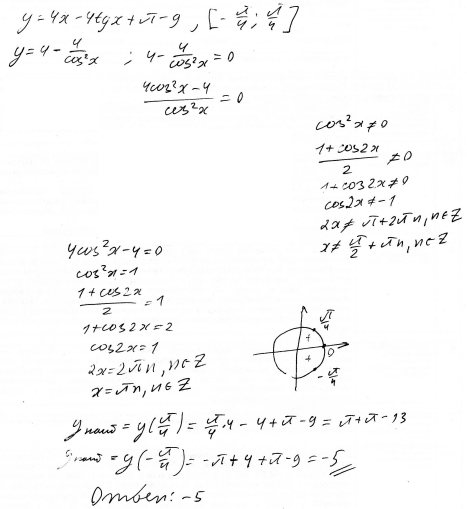 y = 4x - 4tgx + π - 9 , [-π/4; π/4]
y = 4 - 4/cos²x ; 4 - 4/cos²x = 0
(4cos²x - 4)/cos²x = 0
cos²x ≠ 0
(1 + cos2x)/2 ≠ 0
1 + cos2x ≠ 0
cos2x ≠ -1
2x ≠ π + 2πn, n ∈ Z
x ≠ π/2 + πn, n ∈ Z
4cos²x - 4 = 0
cos²x = 1
(1 + cos2x)/2 = 1
1 + cos2x = 2
cos2x = 1
2x = 2πn, n ∈ Z
x = πn, n ∈ Z
π/4
+
0
+
-π/4
y наиб = y(π/4) = π/4·4 - 4 + π - 9 = π + π - 13
y наиб = y(-π/4) = -π + 4 + π - 9 = -5
Ответ: -5